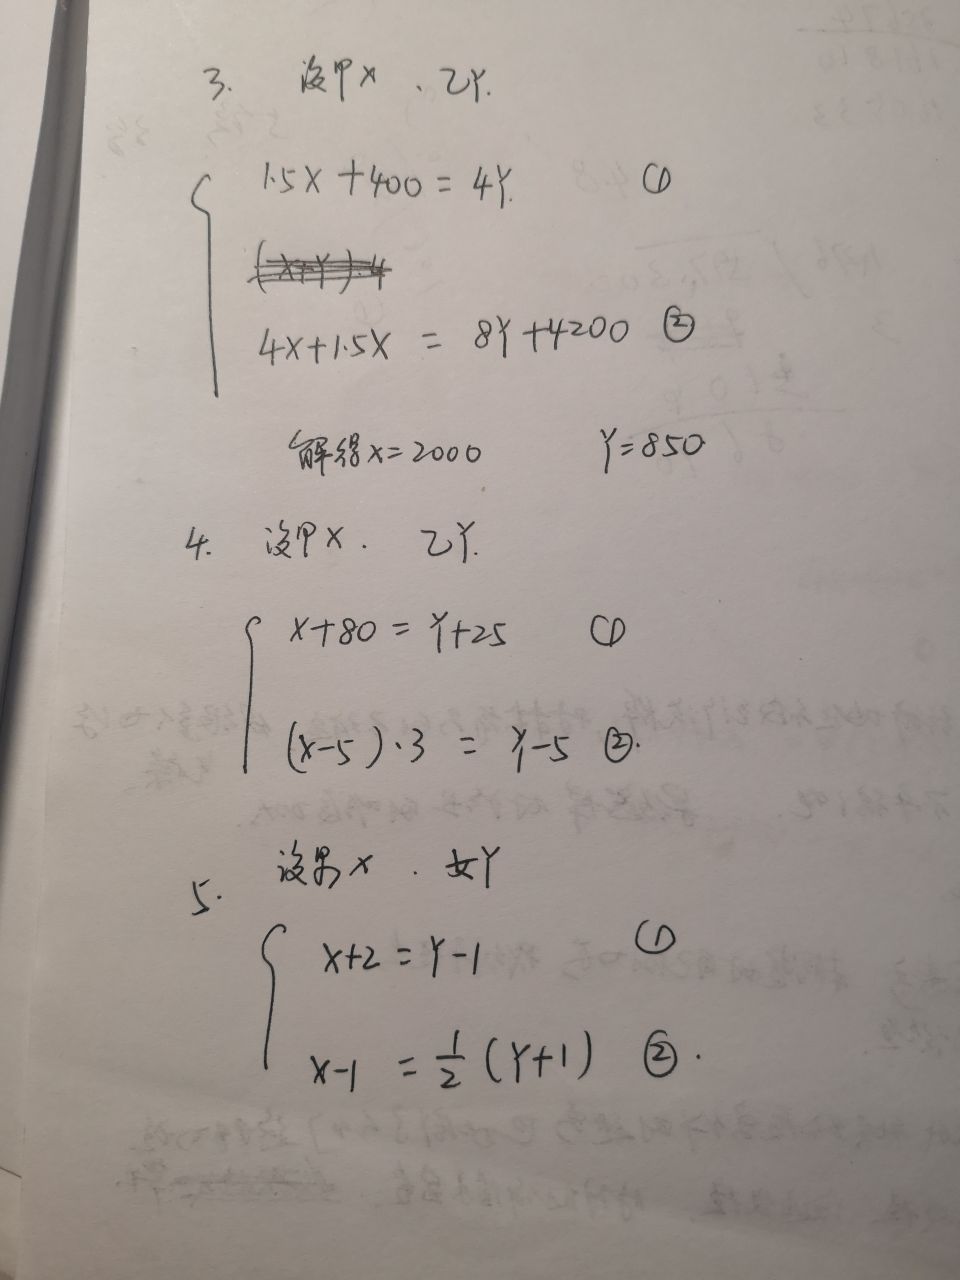 3. 设甲X . 乙Y.
1.5X+400=4Y. ①
4X+1.5X = 8Y+4200 ②
解得X=2000 Y=850
4. 设甲X. 乙Y.
X+80=Y+25 ①
(X-5)·3 = Y-5 ②.
5. 设男X . 女Y
X+2=Y-1 ①
X-1 = 1/2 (Y+1) ②.